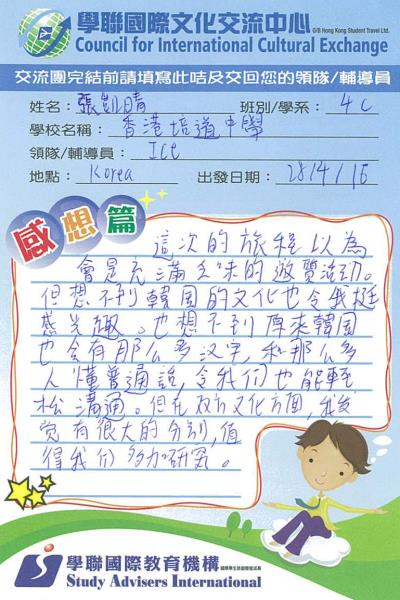 學聯國際文化交流中心
G/B Hong Kong Student Travel Ltd.
Council for International Cultural Exchange
交流團完結前請填寫此咭及交回您的領隊/輔導員
姓名：張凱晴 班別/學系：4C
學校名稱：香港培道中學
領隊/輔導員：Ice
地點：Korea 出發日期：28/4/15
感想篇
這次的旅程以為
會是充滿乏味的遊覽活动。
但想不到韓国的文化也令我挺
感兴趣。也想不到原來韓国
也会有那么多汉字,和那么多
人懂普通話,令我们也能輕
松溝通。但在双方文化方面,我发
觉有很大的分别,值
得我们多加研究。
學聯國際教育機構
Study Advisers International